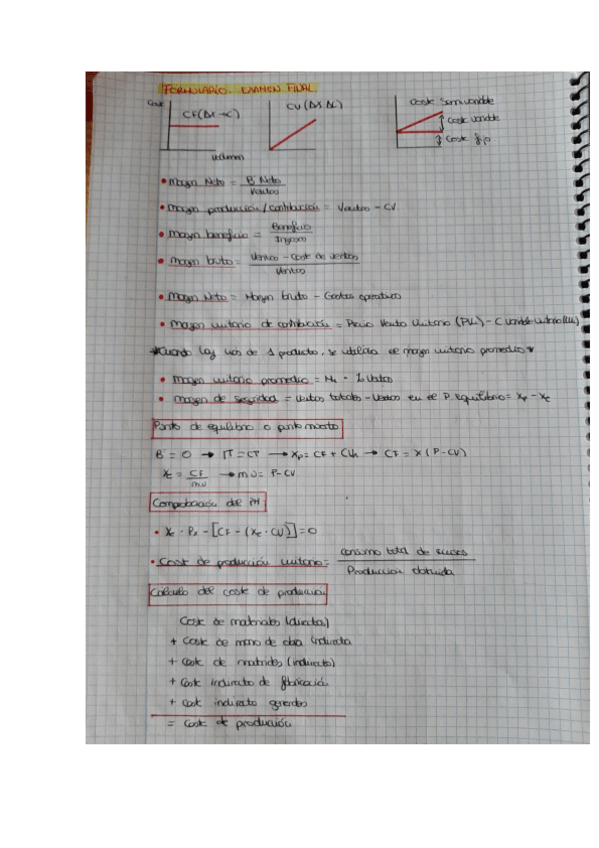 FORMULARIO. EXAMEN FINAL
Coste
CF
CV
Coste Semivariable
Coste variable
Coste fijo
volumen
• Margen Neto = Bº Neto / Ventas
• Margen producción/contribución = Ventas - CV
• Margen beneficio = Beneficio / Ingresos
• Margen bruto = Ventas - Coste de ventas / Ventas
• Margen Neto = Margen bruto - Gastos operativos
• Margen unitario de contribución = Precio Venta Unitario - C variable unitario
*Cuando hay más de 1 producto, se utiliza el margen unitario promedio*
• Margen unitario promedio =
• Margen de seguridad = Ventas totales - Ventas en el P. Equilibrio =
Punto de equilibrio o punto muerto
B = 0 → IT = CT → → CF = X (P - CV)
Xe = CF / mu → mu = P - CV
Comprobación del PM
= 0
• Coste de producción unitario = consumo total de / Producción obtenida
Cálculo del coste de producción
Coste de materiales (directos)
+ Coste de mano de obra
+ Coste de materiales (indirecto)
+ Coste indirecto de fabricación
+ Coste indirecto generales
= Coste de producción